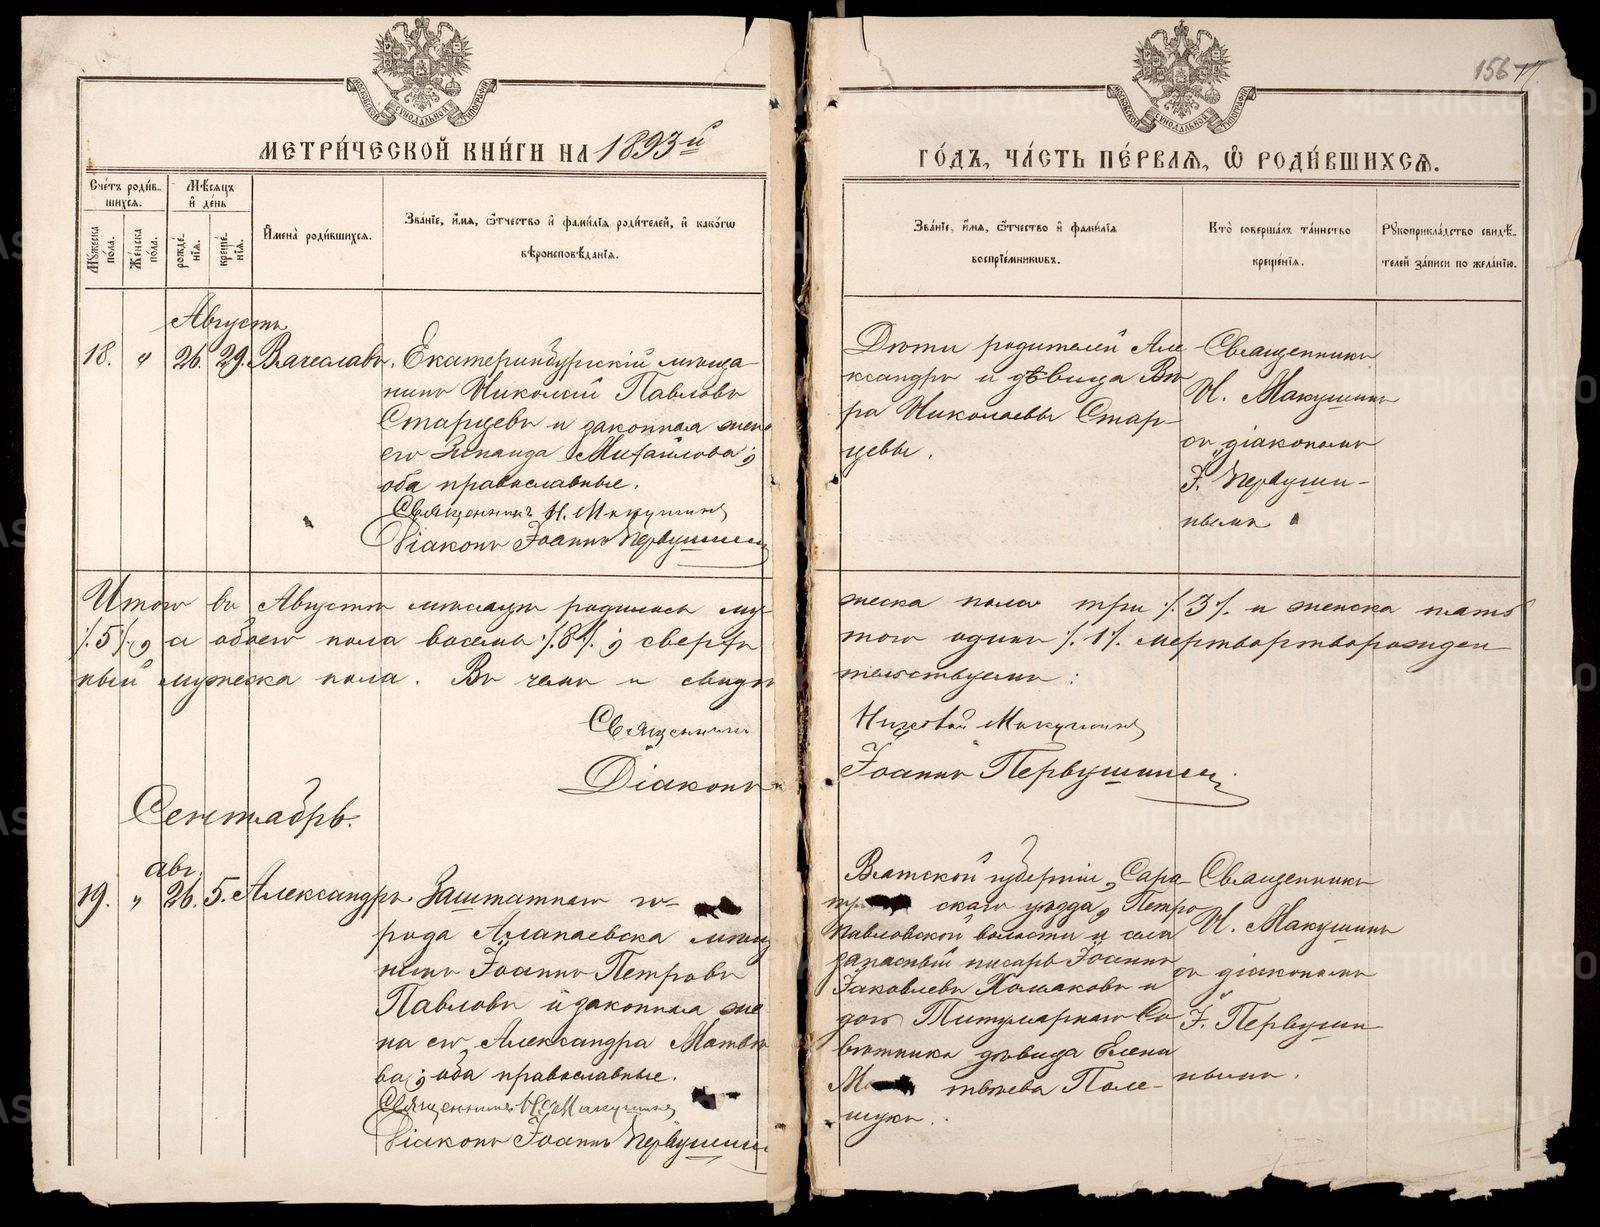 МЕТРИ́ЧЕСКОЙ КНИ́ГИ НА 1893й
ГО́ДЪ, ЧА́СТЬ ПЕ́РВАЯ, Ѿ РОДИ́ВШИХСЯ.
156
МОСКОВСКОЙ СУНОДАЛЬНОЙ ТИПОГРАФІИ
МОСКОВСКОЙ СУНОДАЛЬНОЙ ТИПОГРАФІИ
Сче́тъ роди́в-
шихся.
Мꙋ́жеска пола.
Же́нска пола.
Мѣ́сяцъ
и҆ де́нь
рожде́-
нїя.
креще́-
нїя.
И҆мена̀ роди́вшихся.
Зва́нїе, и҆́мя, ѻ҆́тчество и҆ фами́лїя роди́телей, и҆ како́гѡ
вѣроисповѣ́данїя.
Зва́нїе, и҆́мя, ѻ҆́тчество и҆ фами́лїя
воспрїе́мникѡвъ.
Кто̀ соверша́лъ та́инство
креще́нїя.
Рꙋкоприкла́дство свидѣ́-
телей за́писи по жела́нїю.
Августъ
18. " 26. 29. Вячеславъ. Екатеринбургскій мѣща-
нинъ Николай Павловъ
Старцевъ и законная жена
его Зинаида Михайлова;
оба православные.
Священникъ Н. Макушинъ
Діаконъ Іоаннъ Первушинъ
Дѣти родителей Але-
ксандръ и дѣвица Вѣ-
ра Николаевы Стар-
цевы.
Священникъ
Н. Макушинъ
съ діакономъ
І. Первуши-
нымъ
Итого въ Августѣ мѣсяцѣ родилось му-
жеска пола три /.3/. и женска пять
/.5/., а обоего пола восемь /.8/.; сверхъ
того одинъ /.1/. мертвортворожден
ный мужеска пола. Въ чемъ и свидѣ
тельствуемъ:
Священникъ
Николай Макушинъ
Діаконъ
Іоаннъ Первушинъ
Сентябрь.
авг.
19. " 26. 5. Александръ. Заштатнаго го-
рода Алапаевска мѣщ
нинъ Іоаннъ Петровъ
Павловъ и законная же
на его Александра Матвѣе
ва; оба православные.
Священникъ Н. Макушинъ
Діаконъ Іоаннъ Первушинъ
Вятской губерніи, Сара-
скаго уѣзда, Петро
павловской волости и села
запасный писарь Іоаннъ
Іаковлевъ Хомяковъ и
дочь Титулярнаго Со
вѣтника дѣвица Елена
М твѣева Поле-
щукъ.
Священникъ
Н. Макушинъ
съ діакономъ
І. Первуши
нымъ.
METRIKI.GASO-URAL.RU